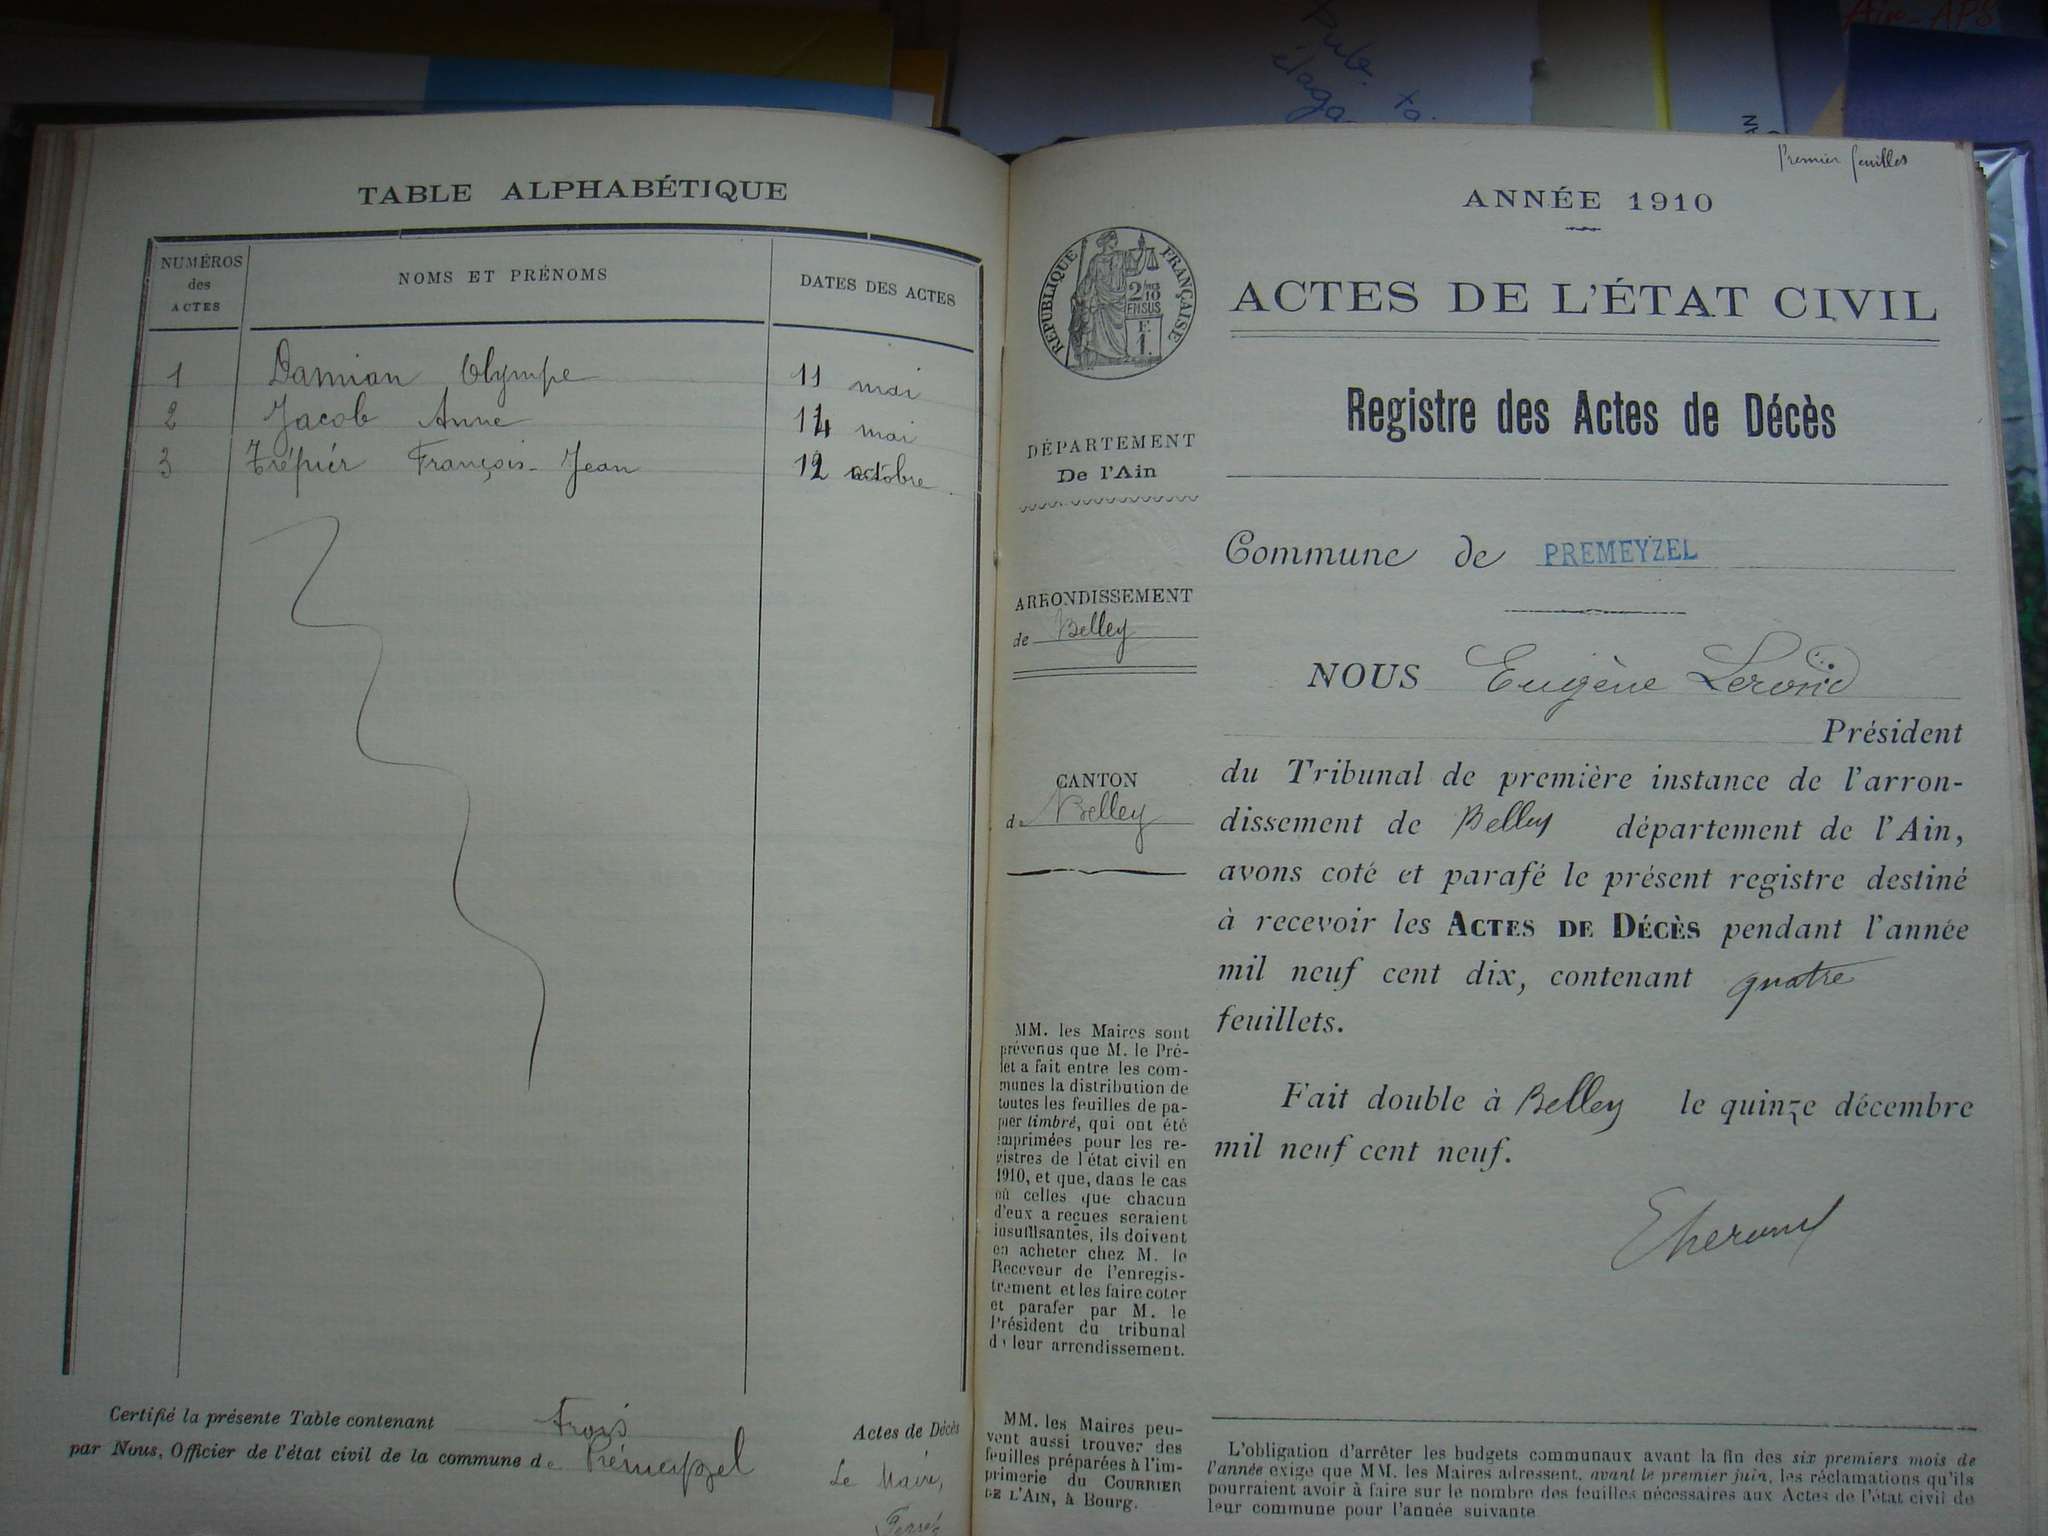 Pub.
élaga
Ain - APS
TABLE ALPHABÉTIQUE
NUMÉROS des ACTES
NOMS ET PRÉNOMS
DATES DES ACTES
1 Damian Olympe 11 mai
2 Jacob Anne 14 mai
3 Trépier François-Jean 12 octobre
Certifié la présente Table contenant Trois Actes de Décès
par Nous, Officier de l'état civil de la commune de Prémeyzel
Le Maire,
Premier feuilles
ANNÉE 1910
RÉPUBLIQUE FRANÇAISE
2/10 EN SUS
F. 1.
ACTES DE L'ÉTAT CIVIL
Registre des Actes de Décès
DÉPARTEMENT
De l'Ain
Commune de PREMEYZEL
ARRONDISSEMENT
de Belley
NOUS Eugène
Président
CANTON
de Belley
du Tribunal de première instance de l'arron-
dissement de Belley département de l'Ain,
avons coté et parafé le présent registre destiné
à recevoir les ACTES DE DÉCÈS pendant l'année
mil neuf cent dix, contenant quatre
feuillets.
Fait double à Belley le quinze décembre
mil neuf cent neuf.
MM. les Maires sont
prévenus que M. le Pré-
fet a fait entre les com-
munes la distribution de
toutes les feuilles de pa-
pier timbré, qui ont été
imprimées pour les re-
gistres de l'état civil en
1910, et que, dans le cas
où celles que chacun
d'eux a reçues seraient
insuffisantes, ils doivent
en acheter chez M. le
Receveur de l'enregis-
trement et les faire coter
et parafer par M. le
Président du tribunal
de leur arrondissement.
MM. les Maires peu-
vent aussi trouver des
feuilles préparées à l'im-
primerie du COURRIER
DE L'AIN, à Bourg.
L'obligation d'arrêter les budgets communaux avant la fin des six premiers mois de
l'année exige que MM. les Maires adressent, avant le premier juin, les réclamations qu'ils
pourraient avoir à faire sur le nombre des feuilles nécessaires aux Actes de l'état civil de
leur commune pour l'année suivante